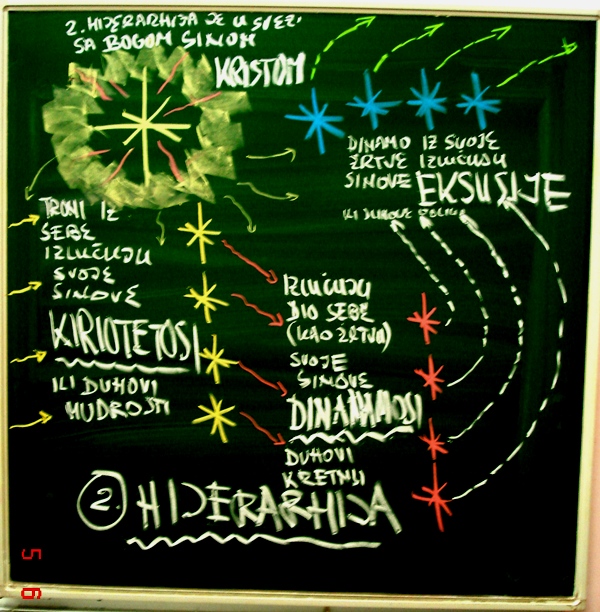 2. HIJERARHIJA JE U SVEZI
SA BOGOM SINOM
KRISTOM
DINAMO IZ SVOJE
ŽRTVE IZLUČUJU
SINOVE EKSUSIJE
ILI
TRONI IZ
SEBE
IZLUČUJU
SVOJE
SINOVE
KIRIOTETOSI
ILI DUHOVI
MUDROSTI
IZLUČUJU
DIO SEBE
(KAO ŽRTVU)
SVOJE
SINOVE
DINAMMOSI
DUHOVI
KRETNJI
2. HIJERARHIJA
5 6